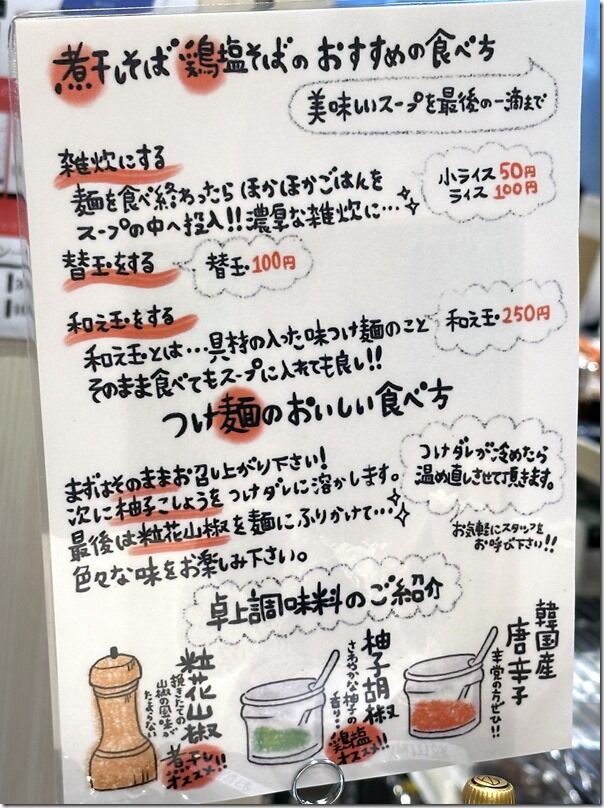 煮干しそば 鶏塩そばの おすすめの食べ方
美味しいスープを最後の一滴まで
雑炊にする
麺を食べ終わったら ほかほかごはんを
スープの中へ投入!! 濃厚な雑炊に…
小ライス 50円
ライス 100円
替玉をする
替玉・100円
和え玉をする
和え玉とは…具材の入った味つけ麺のこと
そのまま食べてもスープに入れても良し!!
和え玉・250円
つけ麺のおいしい食べ方
まずはそのままお召し上がり下さい!
次に柚子こしょうをつけダレに溶かします。
最後は粒花山椒を麺にふりかけて…
色々な味をお楽しみ下さい。
つけダレが冷めたら
温め直しさせて頂きます。
お気軽にスタッフを
お呼び下さい!!
卓上調味料のご紹介
粒花山椒
挽きたての
山椒の風味が
たまらない
煮干し
オススメ!!
柚子胡椒
さわやかな柚子の
香り…
鶏塩
オススメ!!
韓国産
唐辛子
辛党の方ぜひ!!